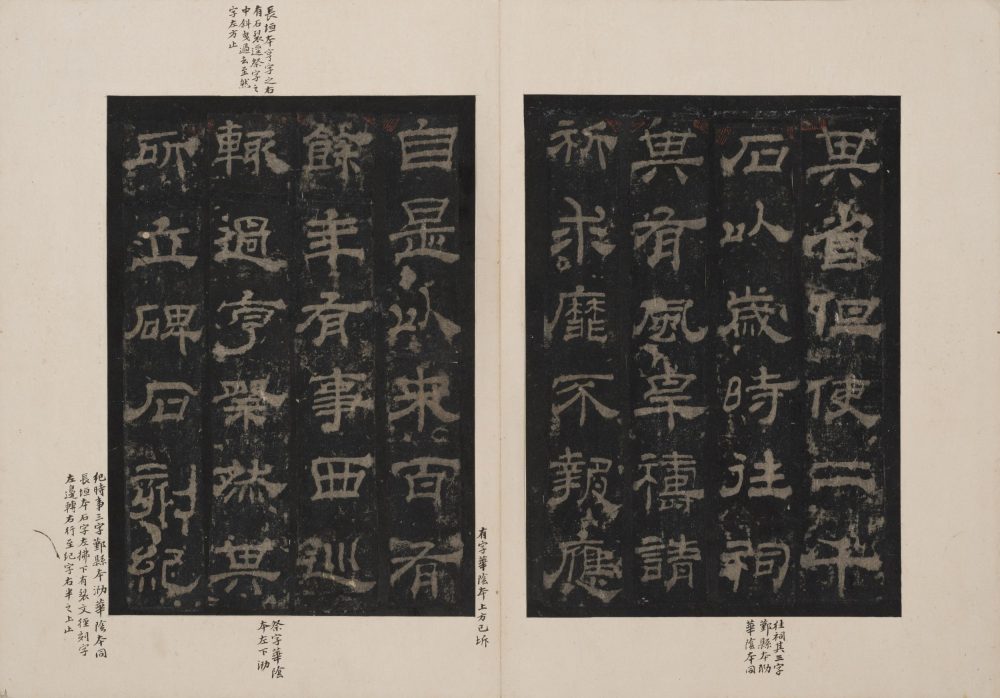 其省但使二千
石以歲時往祠
其有風旱禱請
祈求靡不報應
往祠其三字
鄞縣本泐
華陰本同
自是以來百有
餘年有事西巡
輒過亨祭然其
所立碑石刻紀
長垣本亨字之右
有石裂逕祭字之
中斜曳過去至然
字左方止
有字華陰本上方已坼
祭字華陰
本左下泐
紀時事三字鄞縣本泐華陰本同
長垣本石字左拂下有裂文徑刻字
左邊轉右行至紀字右半之上止